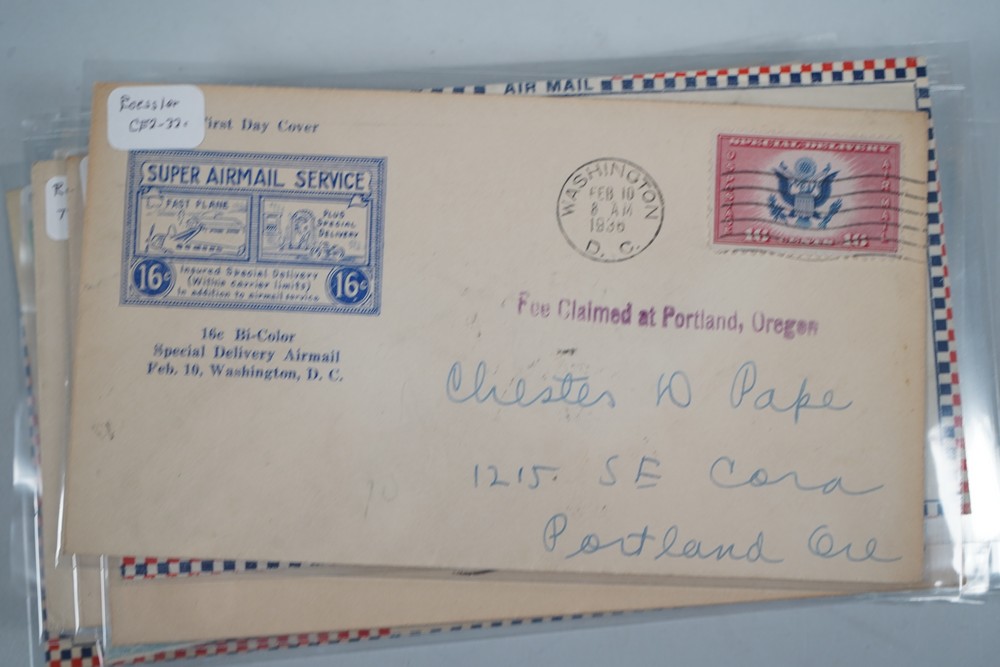 AIR MAIL
Roessler
CE2-32.
First Day Cover
SUPER AIRMAIL SERVICE
FAST PLANE
PLUS
SPECIAL
DELIVERY
16c
Insured Special Delivery
(Within carrier limits)
In addition to airmail service
16c
16c Bi-Color
Special Delivery Airmail
Feb. 10, Washington, D. C.
WASHINGTON
FEB 10
8 AM
1936
D. C.
SPECIAL DELIVERY
AIR MAIL
16 CENTS 16
Fee Claimed at Portland, Oregon
Chester D Pape
1215. SE Cora
Portland Ore